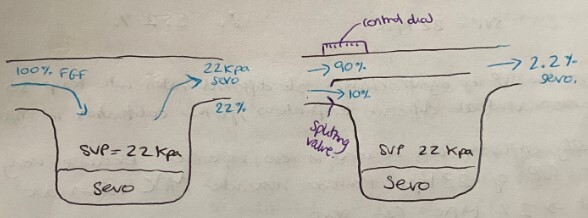 100% FGF
22Kpa
sevo
22%
SVP = 22 Kpa
sevo
control dial
90%
10%
splitting
valve
2.2%
sevo.
SVP 22 Kpa
sevo